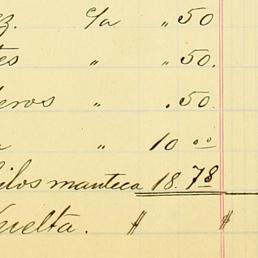 z. c/a " 50
tes " " 50.
eros " . 50.
a " 10 00
ilos manteca 18.78
vuelta. $ $